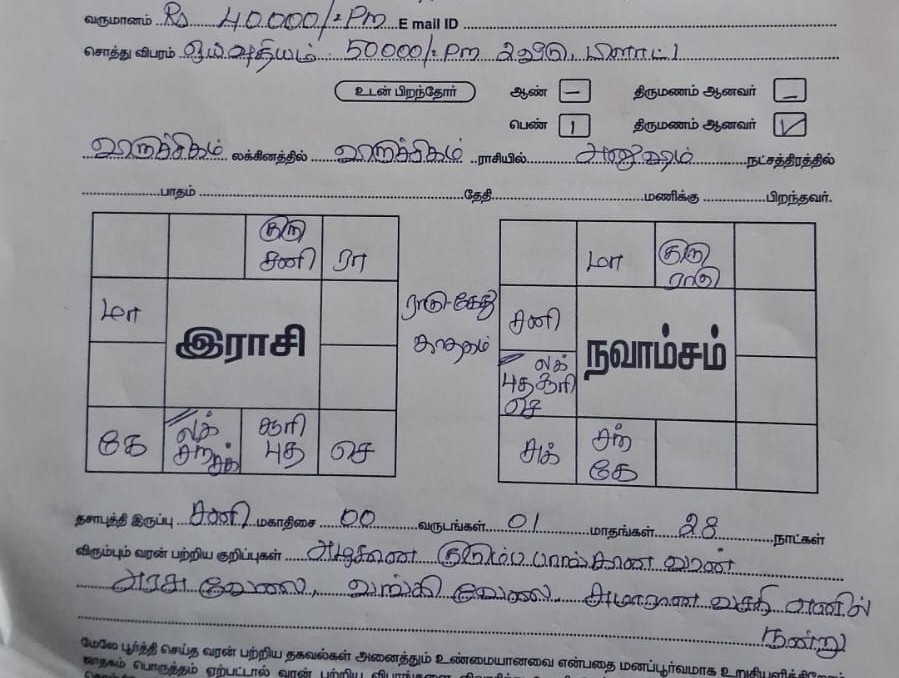 வருமானம் Rs 40,000/- Pm E mail ID
சொத்து விபரம் ஓய்வூதியம் 50000/- Pm 2வீடு, பிளாட் 1
உடன் பிறந்தோர் ஆண் – திருமணம் ஆனவர் –
பெண் 1 திருமணம் ஆனவர் ✓
விருச்சிகம் லக்கினத்தில் விருச்சிகம் ராசியில் அனுஷம் நட்சத்திரத்தில்
பாதம் தேதி மணிக்கு பிறந்தவர்.
குரு சனி ரா
மா
இராசி
கே லக் சந் சுக் சூரி புத செ
ராகு-கேது
ஜாதகம்
மா குரு ராகு
சனி
நவாம்சம்
லக் புத சூரி செ
சுக் சந் கே
தசாபுத்தி இருப்பு சனி மகாதிசை 00 வருடங்கள் 01 மாதங்கள் 28 நாட்கள்
விரும்பும் வரன் பற்றிய குறிப்புகள் அழகான குடும்ப பாங்கான வரன்
அரசு வேலை, வங்கி வேலை, சுமாரான வசதி எனில்
நன்று
மேலே பூர்த்தி செய்த வரன் பற்றிய தகவல்கள் அனைத்தும் உண்மையானவை என்பதை மனப்பூர்வமாக உறுதியளிக்கிறேன்
ஜாதகம் பொருத்தம் ஏற்பட்டால் வரன் பற்றிய விபரங்களை